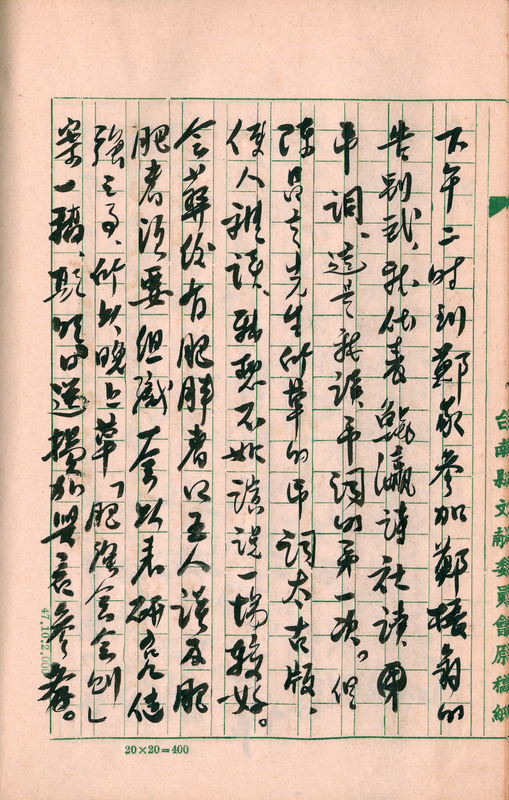 下午二時到鄭家參加鄭振翁的
告別式、我代表鯤瀛詩社讀
弔詞、這是我讀弔詞的第一次。但
陳昌言先生所草的弔詞太古版、
使人難讀、我想不如演說一場較好。
会葬後有肥胖者四五人談及肥
肥者須要組織一会以表研究健
強之事、所以晚上草「肥強会会則」
案一稿、
參考。
台南縣文献委員會原稿紙
47.10.2,000
20×20=400